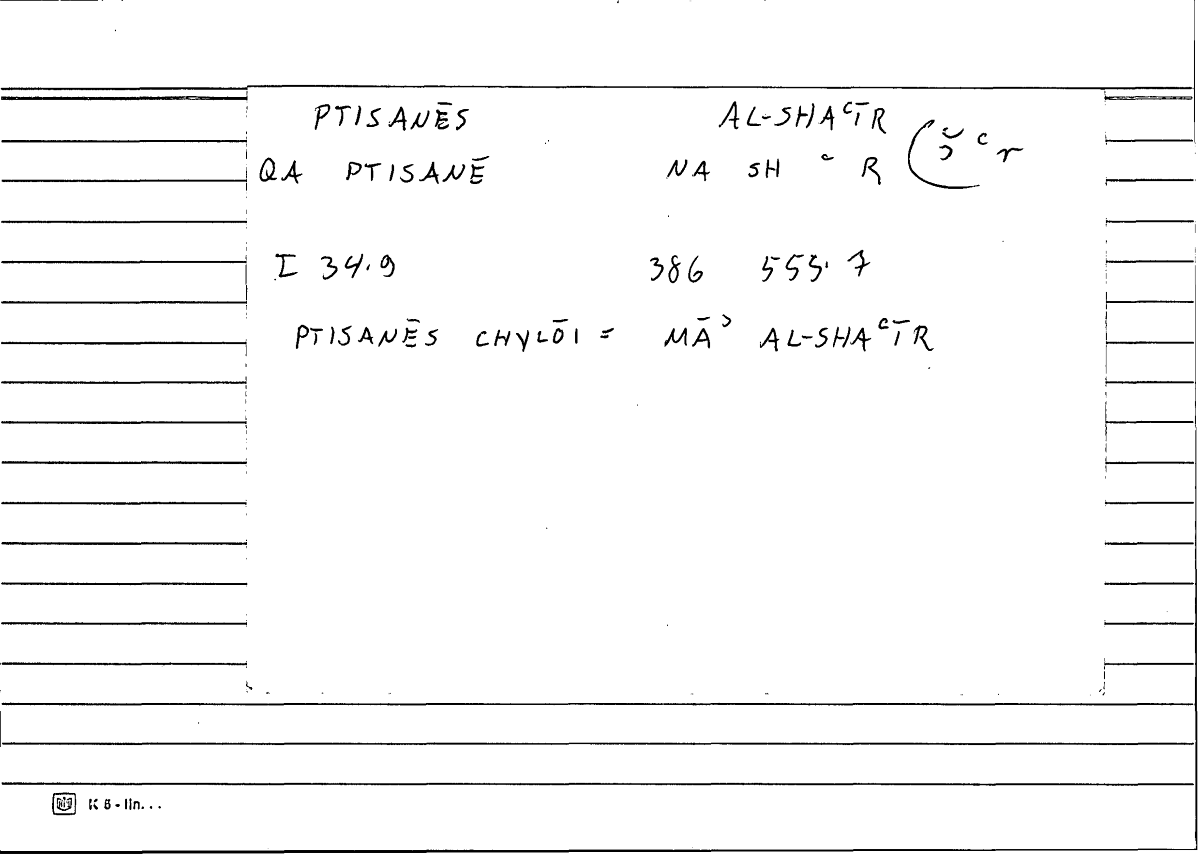 PTISANĒS AL-SHAʿĪR
QA PTISANĒ NA SH ʿ R (š ʿ r
I 34.9 386 555.7
PTISANĒS CHYLŌI = MĀʾ AL-SHAʿĪR
K 5 - lin...